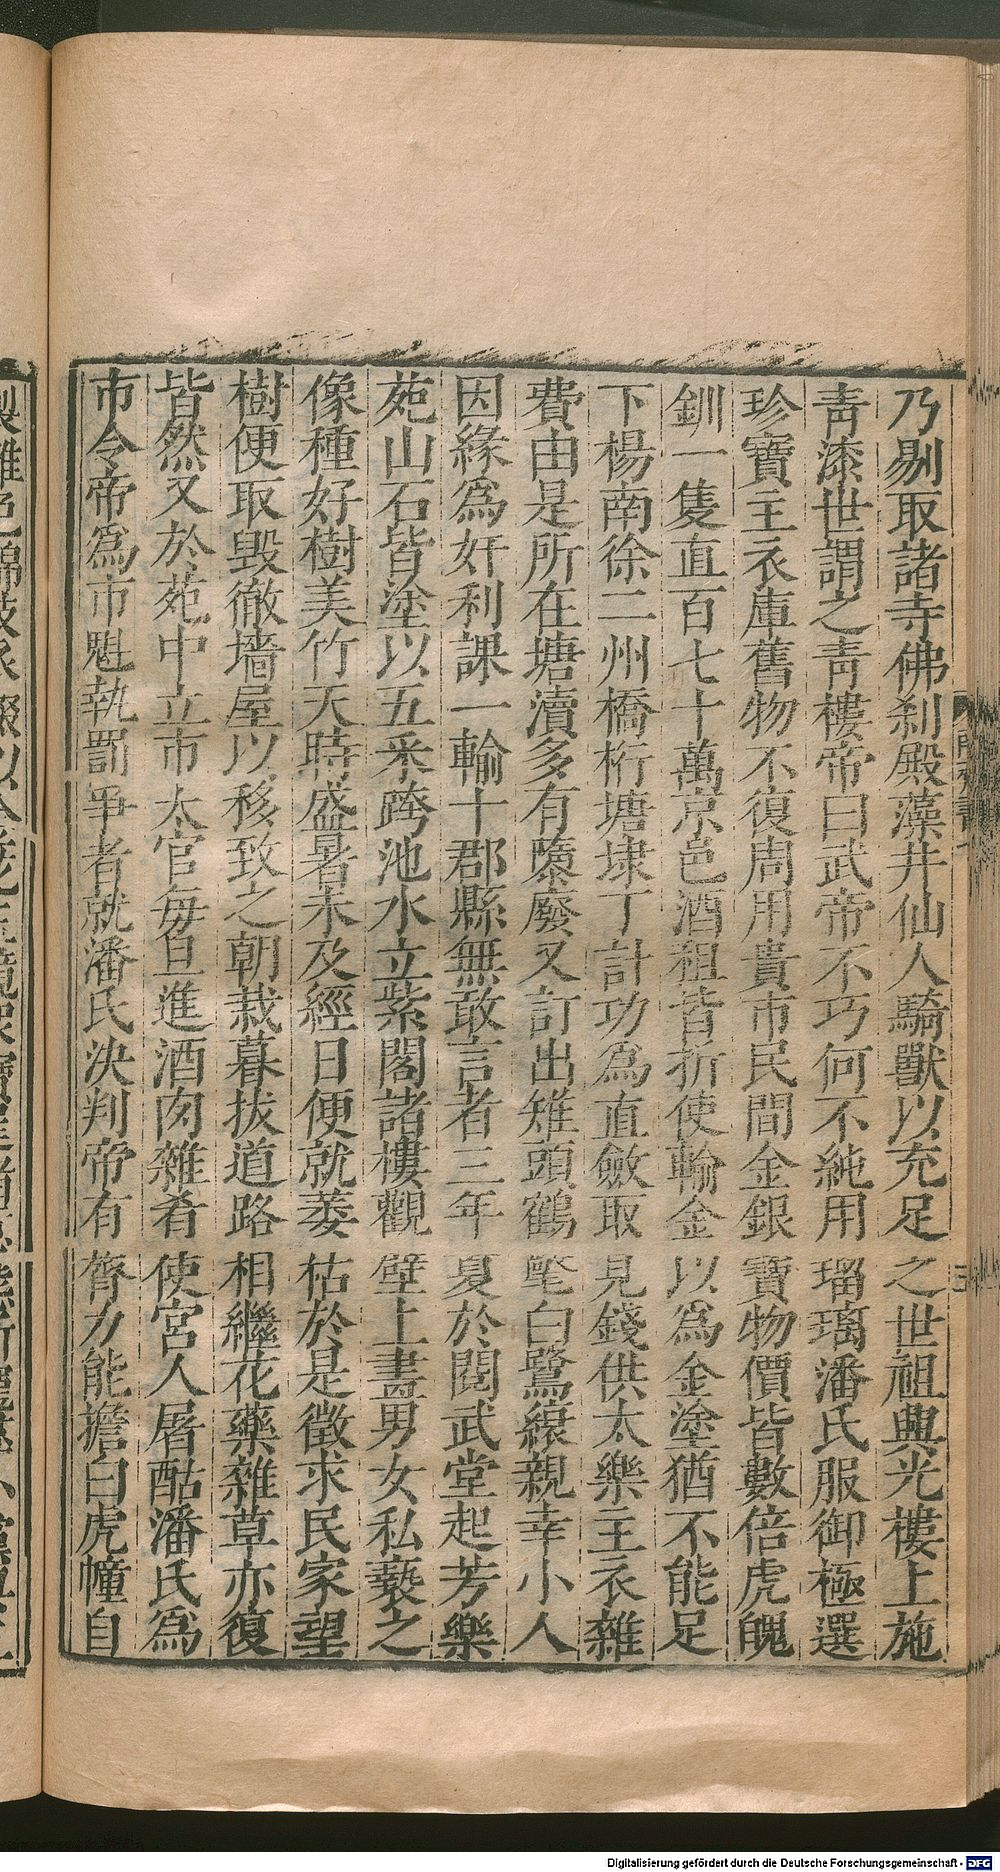 乃剔取諸寺佛刹殿藻井仙人騎獸以充足之世祖興光樓上施
靑漆世謂之靑樓帝曰武帝不巧何不純用瑠璃潘氏服御極選
珍寶主衣庫舊物不復周用貴市民間金銀寶物價皆數倍虎魄
釧一隻直百七十萬京邑酒租皆折使輸金以為金塗猶不能足
下楊南徐二州橋桁塘埭丁計功為直斂取見錢供太樂主衣雜
費由是所在塘瀆多有隳廢又訂出雉頭鶴氅白鷺縗親幸小人
因緣爲奸利課一輸十郡縣無敢言者三年夏於閱武堂起芳樂
苑山石皆塗以五采跨池水立紫閣諸樓觀壁上畫男女私褻之
像種好樹美竹天時盛暑未及經日便就萎枯於是徵求民家望
樹便取毀徹墻屋以移致之朝栽暮拔道路相繼花藥雜草亦復
皆然又於苑中立市太官每旦進酒肉雜肴使宮人屠酤潘氏爲
市令帝爲市魁執罰爭者就潘氏決判帝有膂力能擔白虎幢自
Digitalisierung gefördert durch die Deutsche Forschungsgemeinschaft - DFG